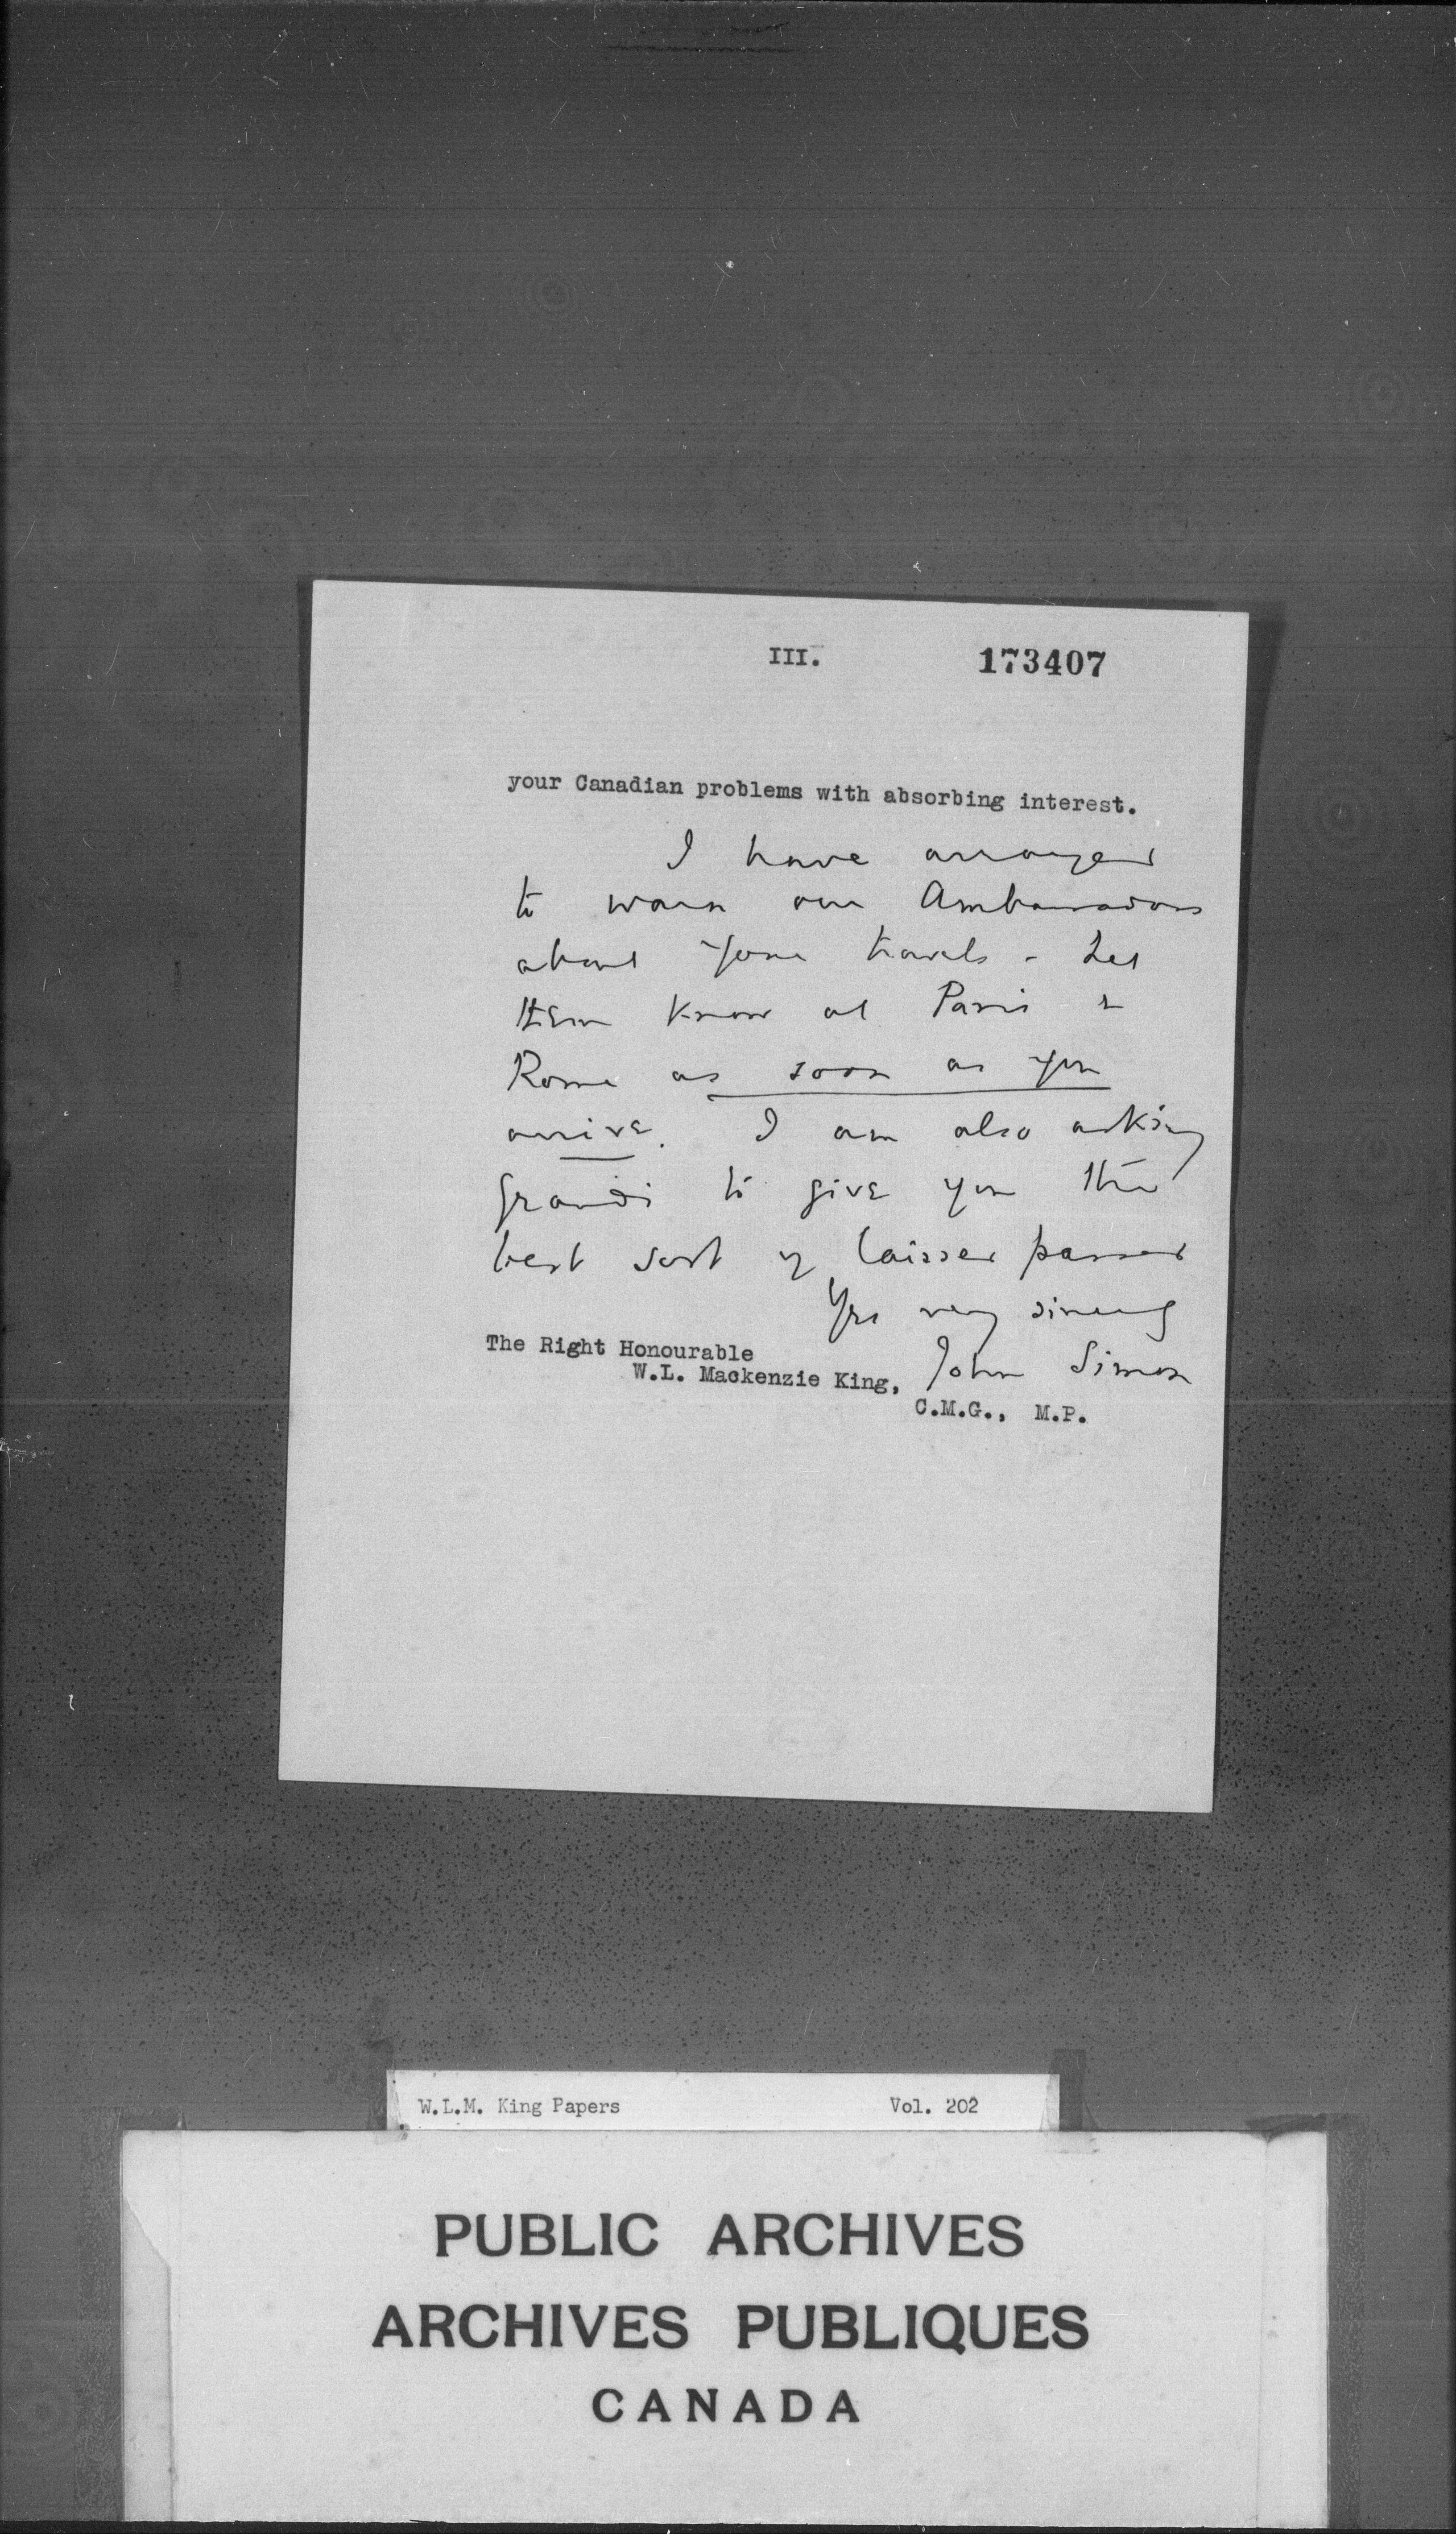 III. 173407
your Canadian problems with absorbing interest.
I have arranged
to warn our Ambassadors
about your travels - Let
them know at Paris &
Rome as soon as you
arrive. I am also asking
Grandi to give you the
best sort of laisser passer
Yrs very sincerely
John Simon
The Right Honourable
W.L. Mackenzie King,
C.M.G., M.P.
W.L.M. King Papers Vol. 202
PUBLIC ARCHIVES
ARCHIVES PUBLIQUES
CANADA